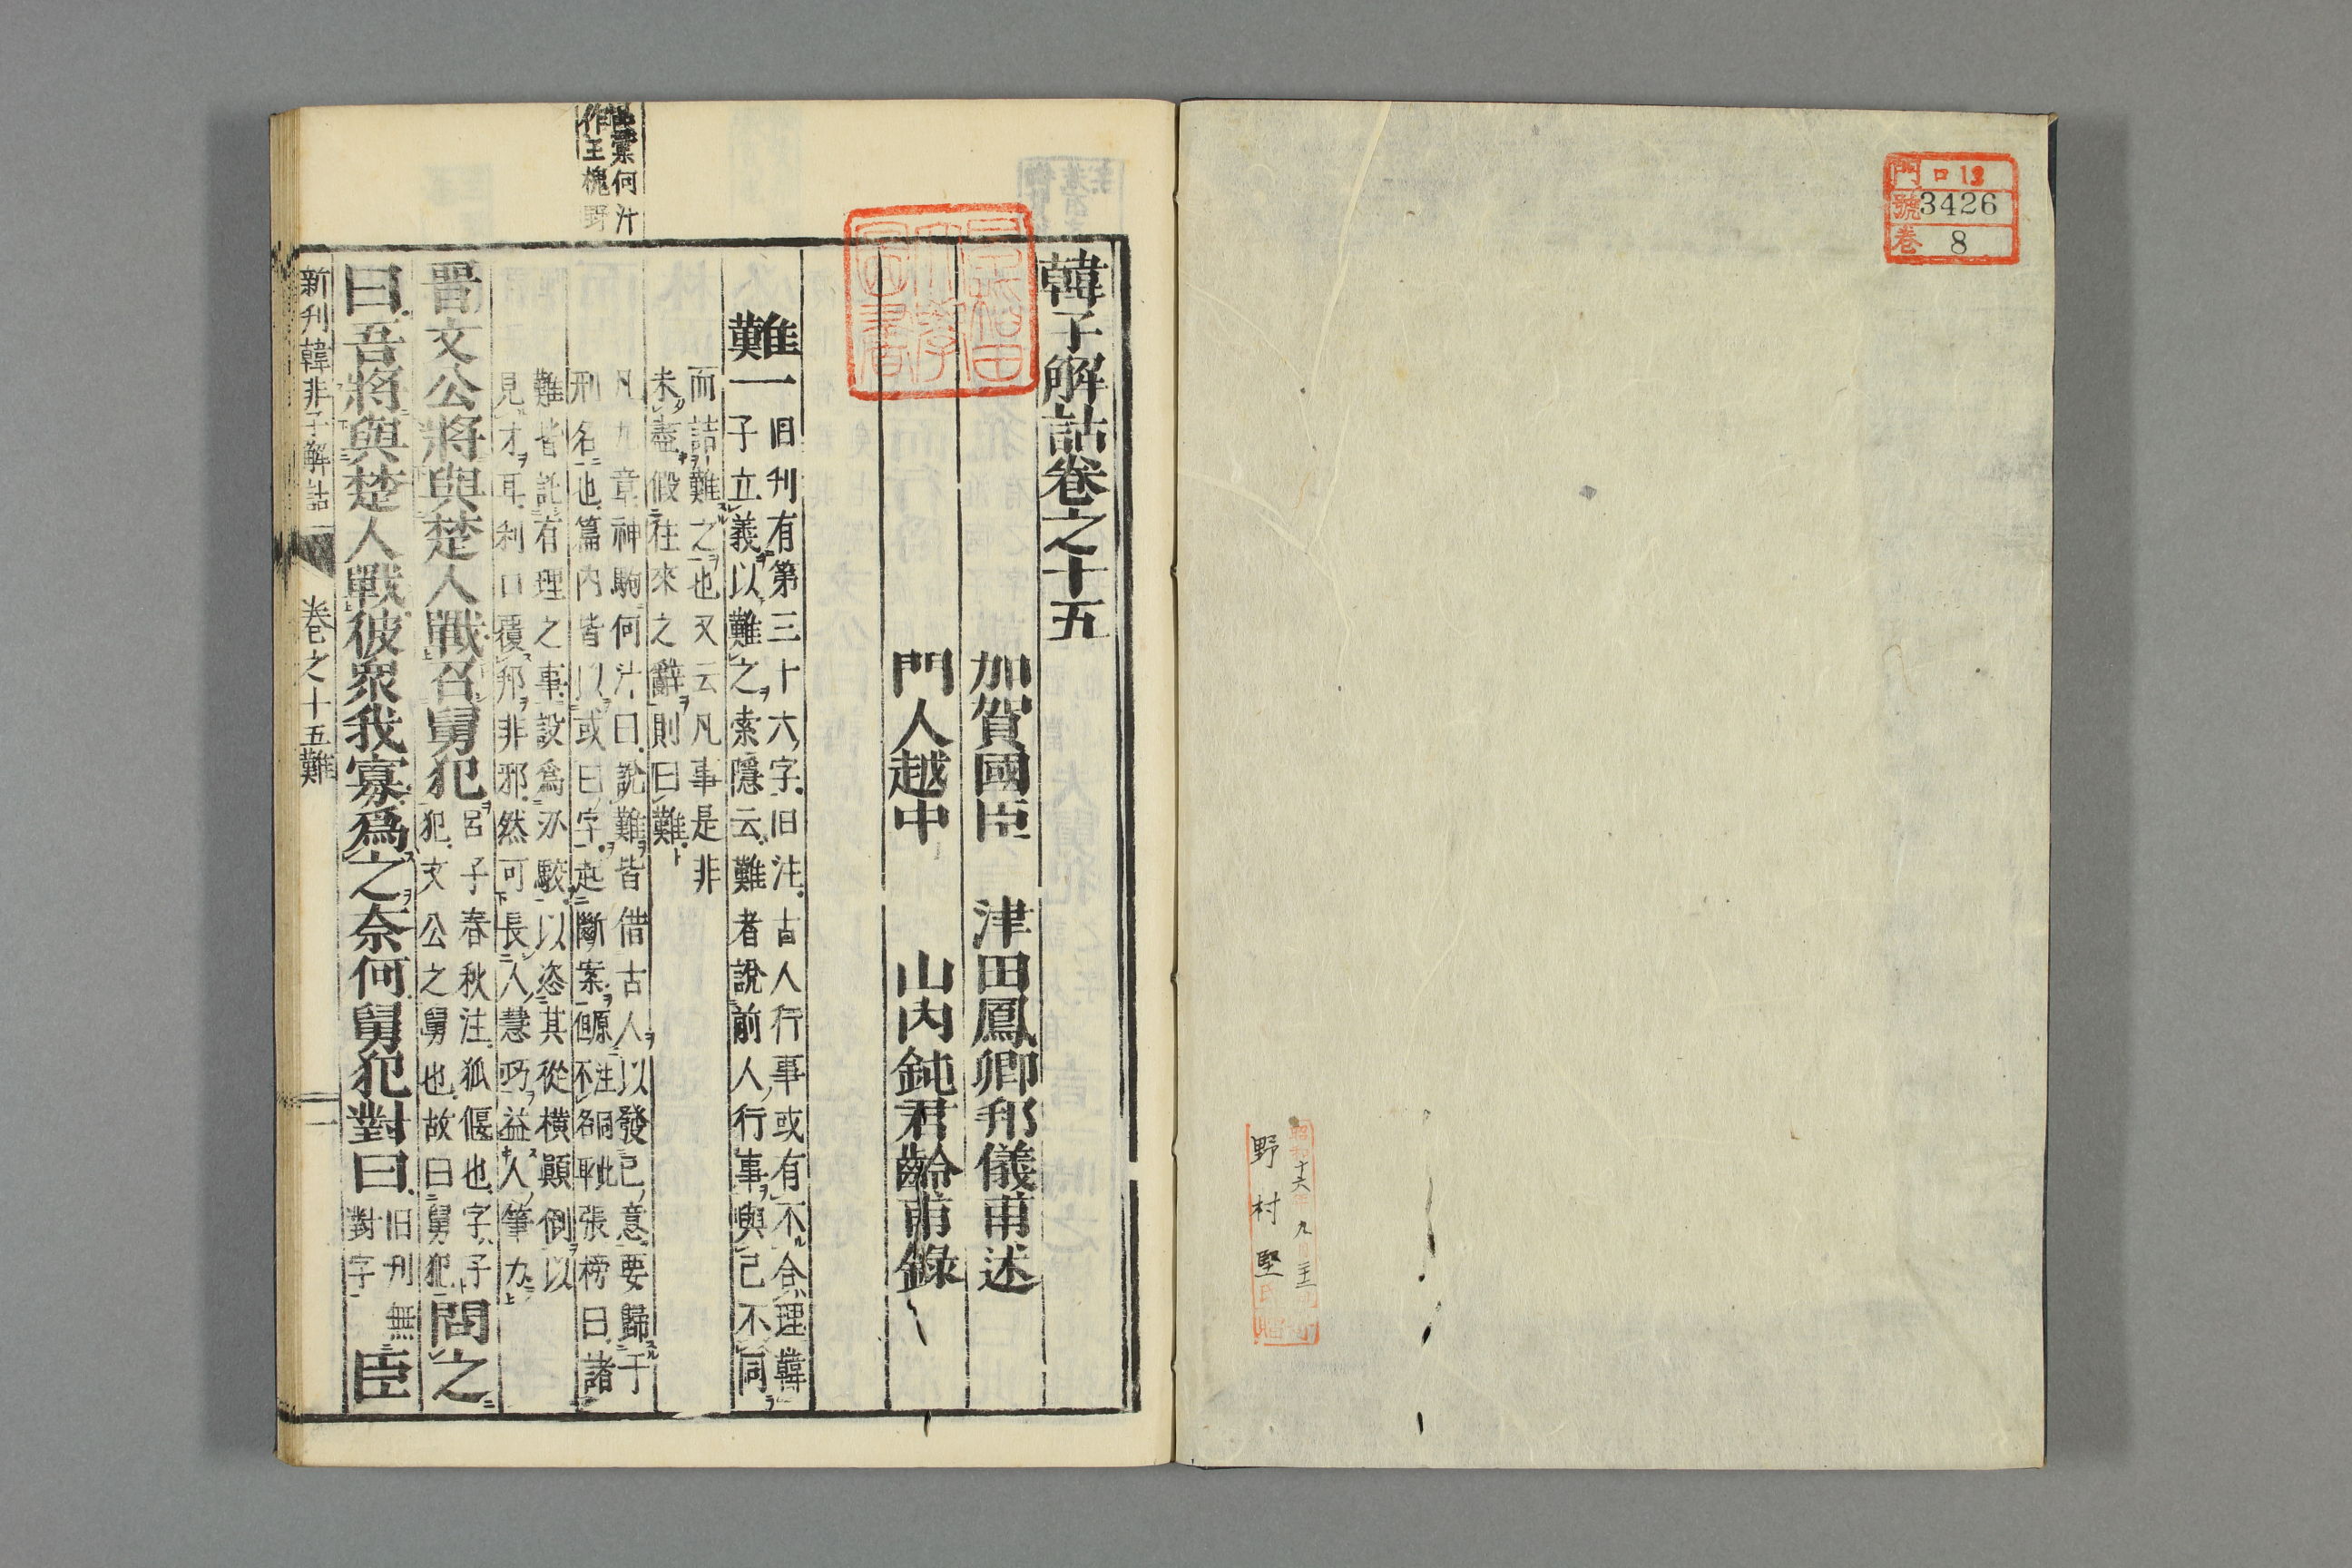 門 ロ13
號 3426
卷 8
昭和十六年九月二十二日
野村堅氏贈
早稲田大學圖書
韓子解詁卷之十五
加賀國臣 津田鳳卿邦儀甫述
門人越中 山內鈍君齡甫錄
難一
旧刊有第三十六字旧注古人行事或有不合理韓
子立義以難之索隱云難者說前人行事與己不同
而詰難之也又云凡事是非
未盡假往來之辭則曰難
凡九章神駒何汴曰說難皆借古人以發己意要歸于
刑名也篇内皆以或曰字起斷案
張榜曰諸
難皆託有理之事設爲水駮以恣其從橫顚倒以
見才耳利口覆邦非邪然可長人慧巧益人筆力
案何汴
作王槐野
晉文公將與楚人戰召舅犯
呂子春秋注狐偃也字子
犯文公之舅也故曰舅犯
問之
曰吾將與楚人戰彼衆我寡爲之奈何舅犯對曰
旧刊無
對字
臣
新刊韓非子解詁 卷之十五難 一